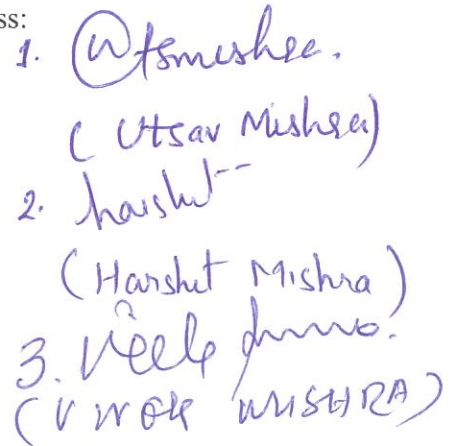 ss:
1. Utsmishra.
(Utsav Mishra)
2. harshit
(Harshit Mishra)
3.
(VIVEK MISHRA)